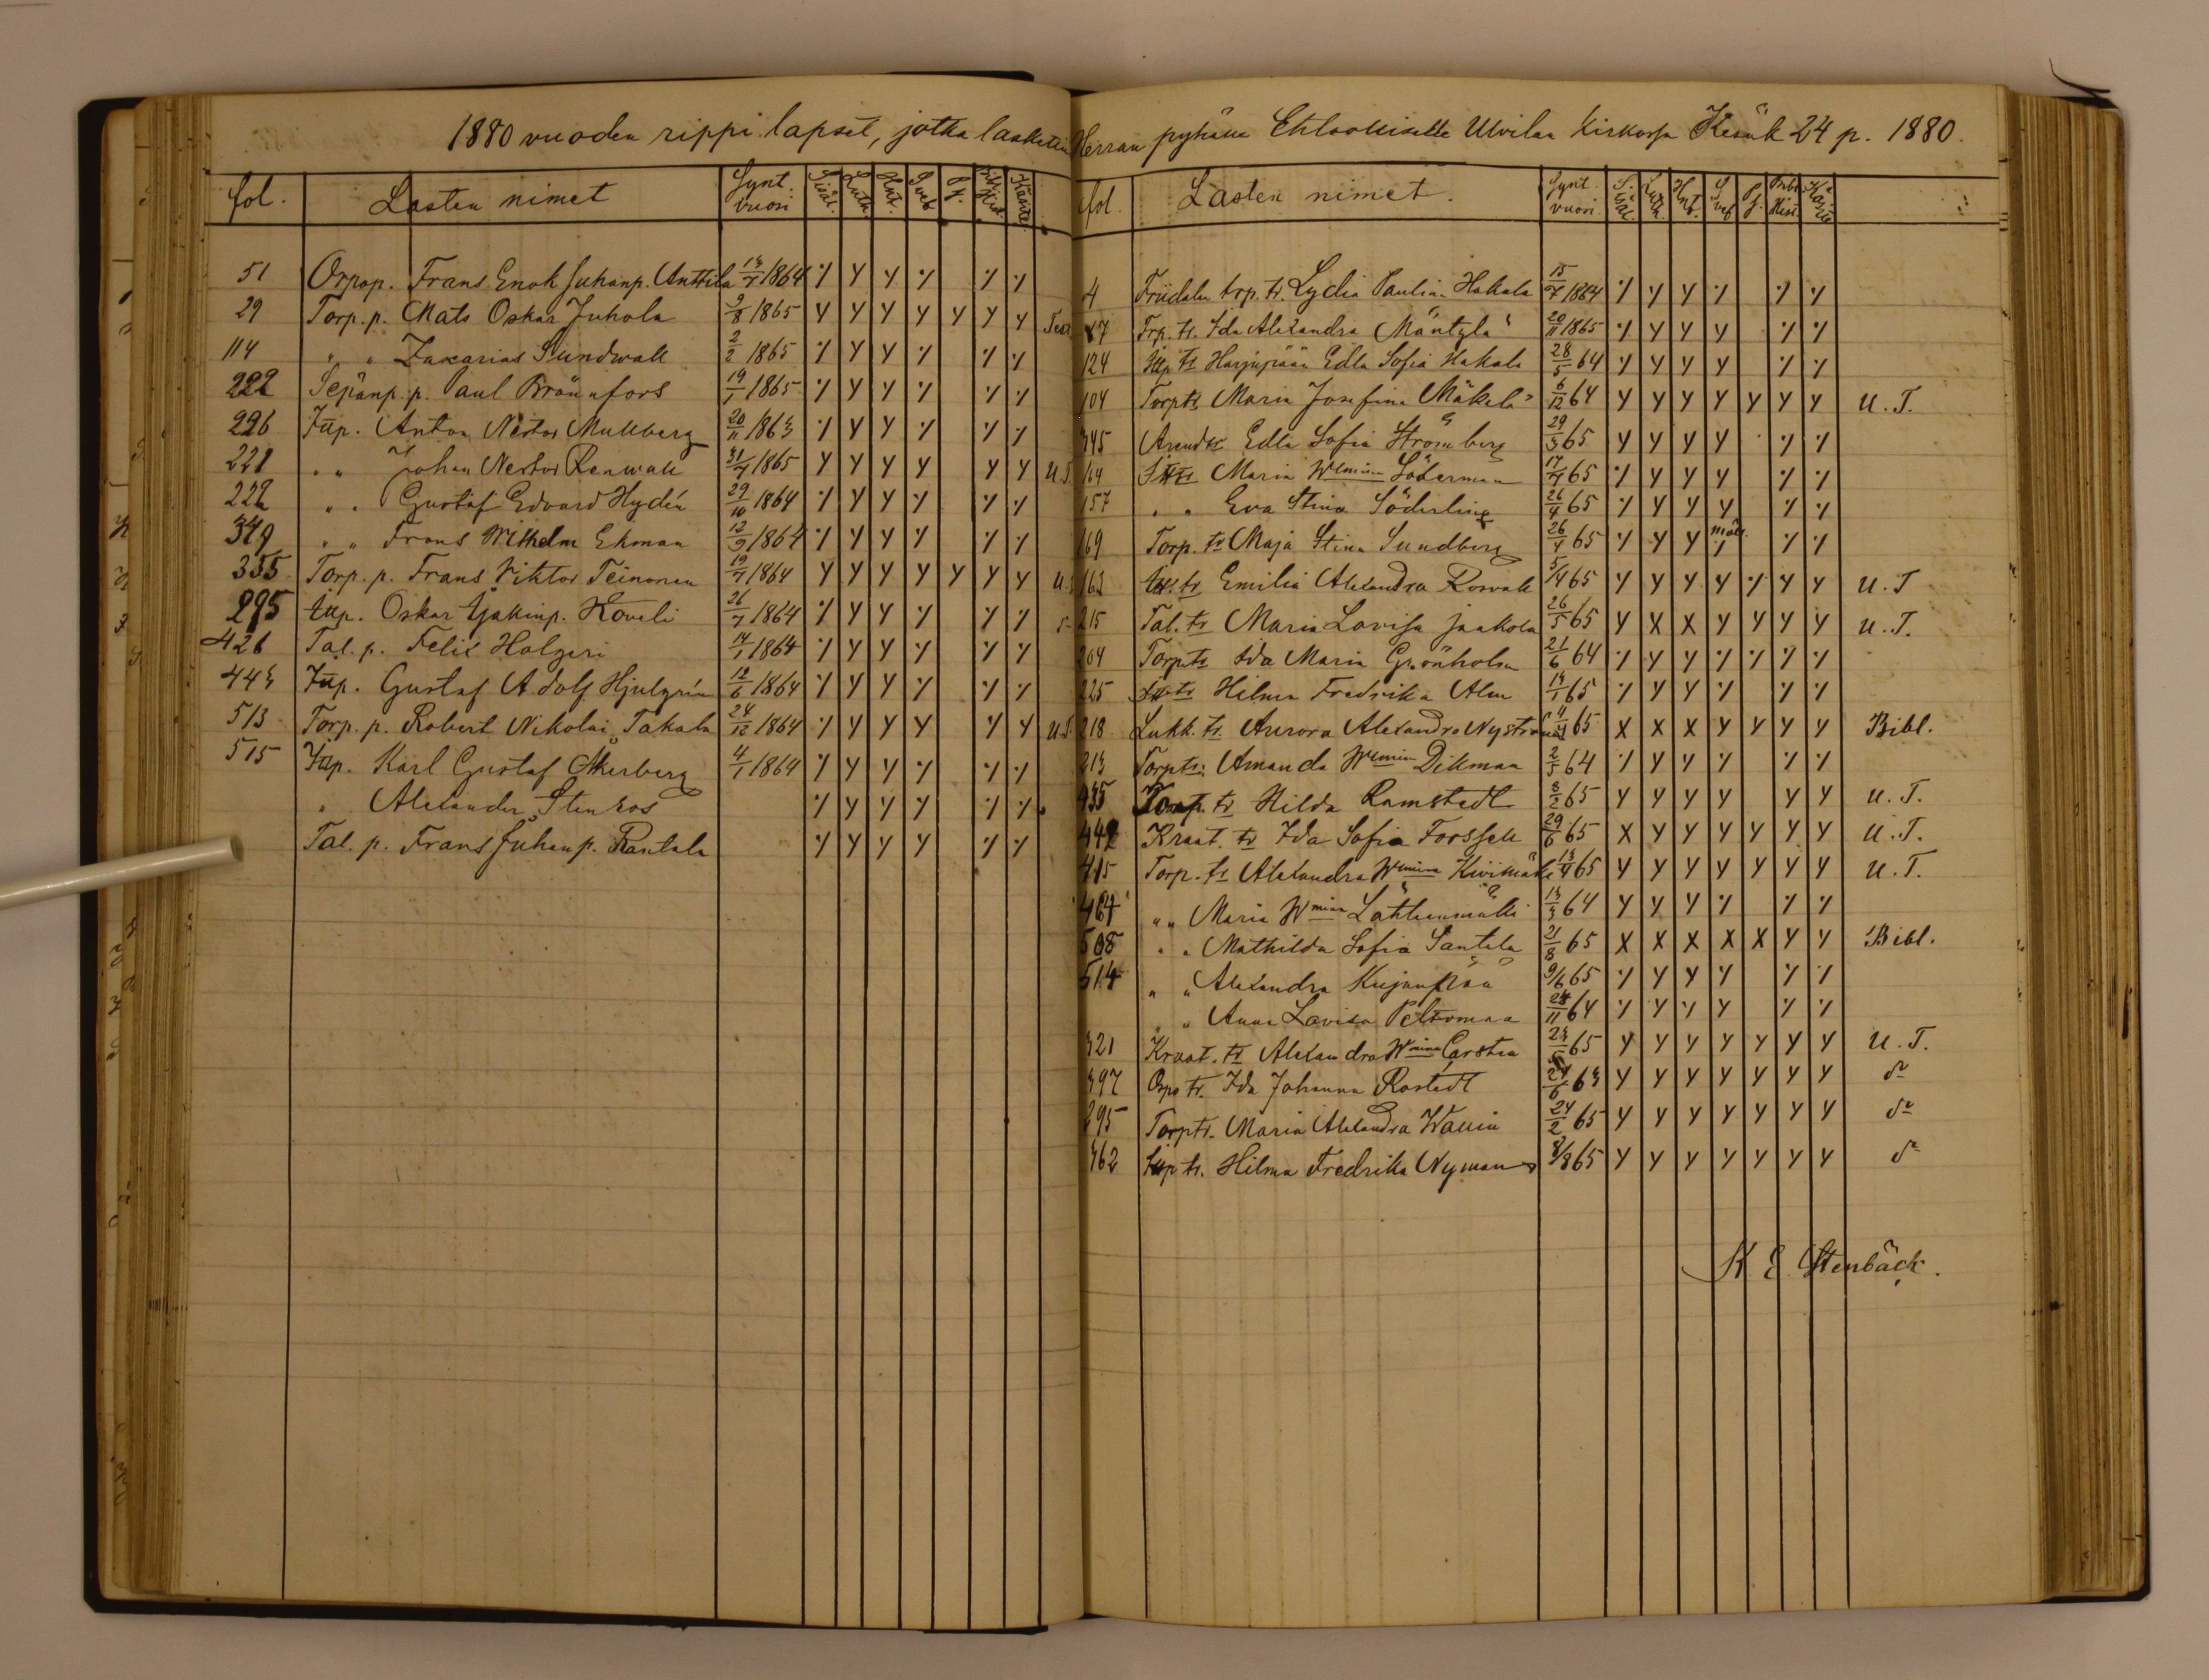 1880 vuoden rippi lapset, jotka laskettiin Herran pyhälle Ehtoolliselle Ulvilan Kirkossa Kesäk 24 p. 1880.
fol. Lasten nimet Synt. vuori
51 Orpop. Frans Enok Juhanp. Anttila 13/7 1864 ٪ Y Y ٪ ٪ ٪
29 Torp. p. Mats Oskar Juhola 9/8 1865 Y Y Y Y Y Y Y
114 " " Zacarias Sundwall 2/2 1865 ٪ Y Y ٪ ٪ ٪
222 Sepänp. p. Paul Brännfors 19/1 1865 ٪ Y Y ٪ ٪ ٪
226 Itp. Anton Nestor Mullberg 20/11 1863 ٪ Y Y ٪ ٪ ٪
221 " " Johan Nestor Renwall 31/7 1865 Y Y Y Y Y Y U.T.
222 " " Gustaf Edvard Hydén 29/10 1864 ٪ Y Y ٪ ٪ ٪
349 " " Frans Wilhelm Ekman 12/9 1864 ٪ Y Y ٪ ٪ ٪
355 Torp. p. Frans Viktor Teinonen 19/7 1864 Y Y Y Y Y Y Y
295 Itp. Oskar Koveli 26/7 1864 ٪ Y Y ٪ ٪ ٪
426 Tal. p. Felix Holgeri 14/1 1864 ٪ Y Y ٪ ٪ ٪
443 Itp. Gustaf Adolf Hjulgrén 12/6 1864 ٪ Y Y ٪ ٪ ٪
513 Torp. p. Robert Nikolai Takala 24/12 1864 ٪ Y Y Y ٪ Y U.T.
515 Itp. Karl Gustaf Åkerberg 4/1 1864 ٪ Y Y ٪ ٪ ٪
" Alexander Stenroos ٪ Y Y ٪ ٪ ٪
Tal. p. Frans Juhanp. Rantala ٪ Y Y Y ٪ ٪
fol. Lasten nimet. Synt. vuori
4 trp. tr. Lydia Paulina Hakala 15/7 1864 ٪ Y Y ٪ ٪ ٪
Trp. tr. Ida Alexandra Mäntylä 20/11 1865 ٪ Y Y Y ٪ ٪
124 Itp tr Harjunpään Edla Sofia Hakala 28/5 64 ٪ Y Y Y ٪ ٪
104 Torp tr. Maria Josefina Mäkelä 6/12 64 Y Y Y Y Y Y Y U.T.
345 Edla Sofia Strömberg 29/3 65 Y Y Y Y ٪ ٪
164 Itp tr Maria Wilmina Söderman 17/4 65 ٪ Y Y Y ٪ ٪
157 " " Eva Stina Söderling 26/4 65 ٪ Y Y Y ٪ ٪
169 Torp. tr Maja Stina Sundberg 26/4 65 ٪ Y Y ٪ ٪ ٪
163 Itp. tr Emilia Alexandra Rosvall 5/4 65 Y Y Y Y ٪ Y Y U.T
215 Tal. tr Maria Lovisa Jaakola 26/5 65 Y X X Y Y Y Y U.T.
204 Torp tr Ida Maria Grönholm 21/6 64 ٪ Y Y ٪ ٪ ٪ ٪
225 Itp tr Hilma Fredrika Alm 14/1 65 ٪ Y Y ٪ ٪ ٪
218 Lukk. tr. Aurora Alexandra Nyström 11/4 65 X X X Y Y Y Y Bibl.
213 Torp tr. Amanda Wilmina Dikman 2/5 64 ٪ Y Y ٪ ٪ ٪
435 Torp. tr Hilda Ramstedt 8/2 65 Y Y Y Y Y Y U.T.
442 Kraat. tr Ida Sofia Forssell 29/6 65 X Y Y Y Y Y Y U.T.
415 Torp. tr Alexandra Wilmina Kivimäki 13/4 65 Y Y Y Y Y Y Y U.T.
464 " " Maria Wmina Lähteenmäki 13/3 64 Y Y Y ٪ ٪ ٪
508 " " Mathilda Sofia Santala 21/8 65 X X X X X Y Y Bibl.
514 " " Alexandra Kujanpää 9/6 65 ٪ Y Y Y ٪ ٪
" " Anna Lovisa Peltomaa 28/11 64 ٪ Y ٪ ٪ ٪ ٪
321 Kraat. tr Alexandra Wmina Carstén 23/5 65 Y Y Y Y Y Y Y U.T.
397 Orpo tr. Ida Johanna Rostedt 21/6 63 Y Y Y Y Y Y Y d:o
295 Torp tr. Maria Alexandra Wallin 24/2 65 Y Y Y Y Y Y Y d:o
362 Itp tr. Hilma Fredrika Nyman 8/8 65 Y Y Y Y Y Y Y d:o
K E Stenbäck.